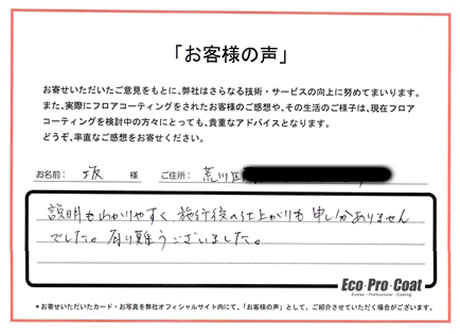 「お客様の声」
お寄せいただいたご意見をもとに、弊社はさらなる技術・サービスの向上に努めてまいります。
また、実際にフロアコーティングをされたお客様のご感想や、その生活のご様子は、現在フロア
コーティングを検討中の方々にとっても、貴重なアドバイスとなります。
どうぞ、率直なご感想をお寄せください。
お名前： 坂 様 ご住所： 荒川区
説明もわかりやすく施行後の仕上がりも申し分ありません
でした。有り難うございました。
Eco・Pro・Coat
Ecolas・Professional・Coating
＊お寄せいただいたカード・お写真を弊社オフィシャルサイト内にて、「お客様の声」として、ご紹介させていただく場合がございます。